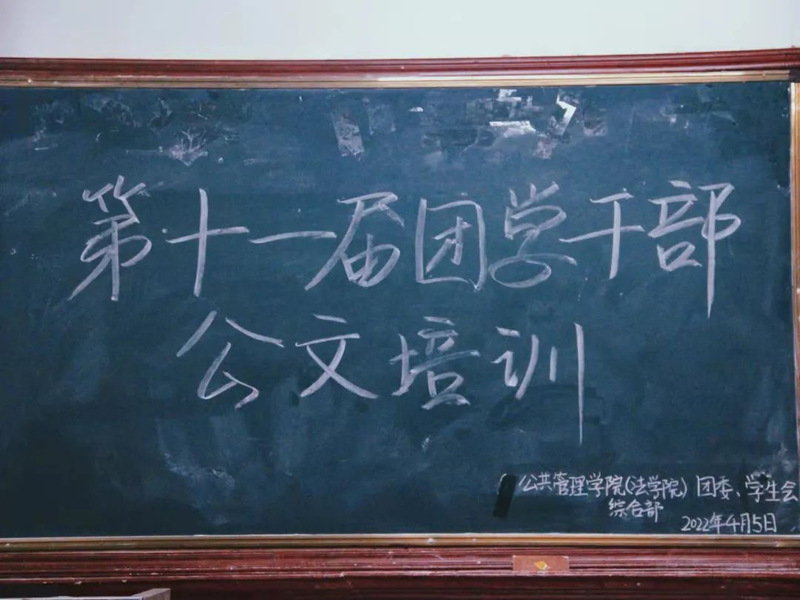 第十一届团学干部
公文培训
公共管理学院(法学院)团委、学生会
综合部
2022年4月5日